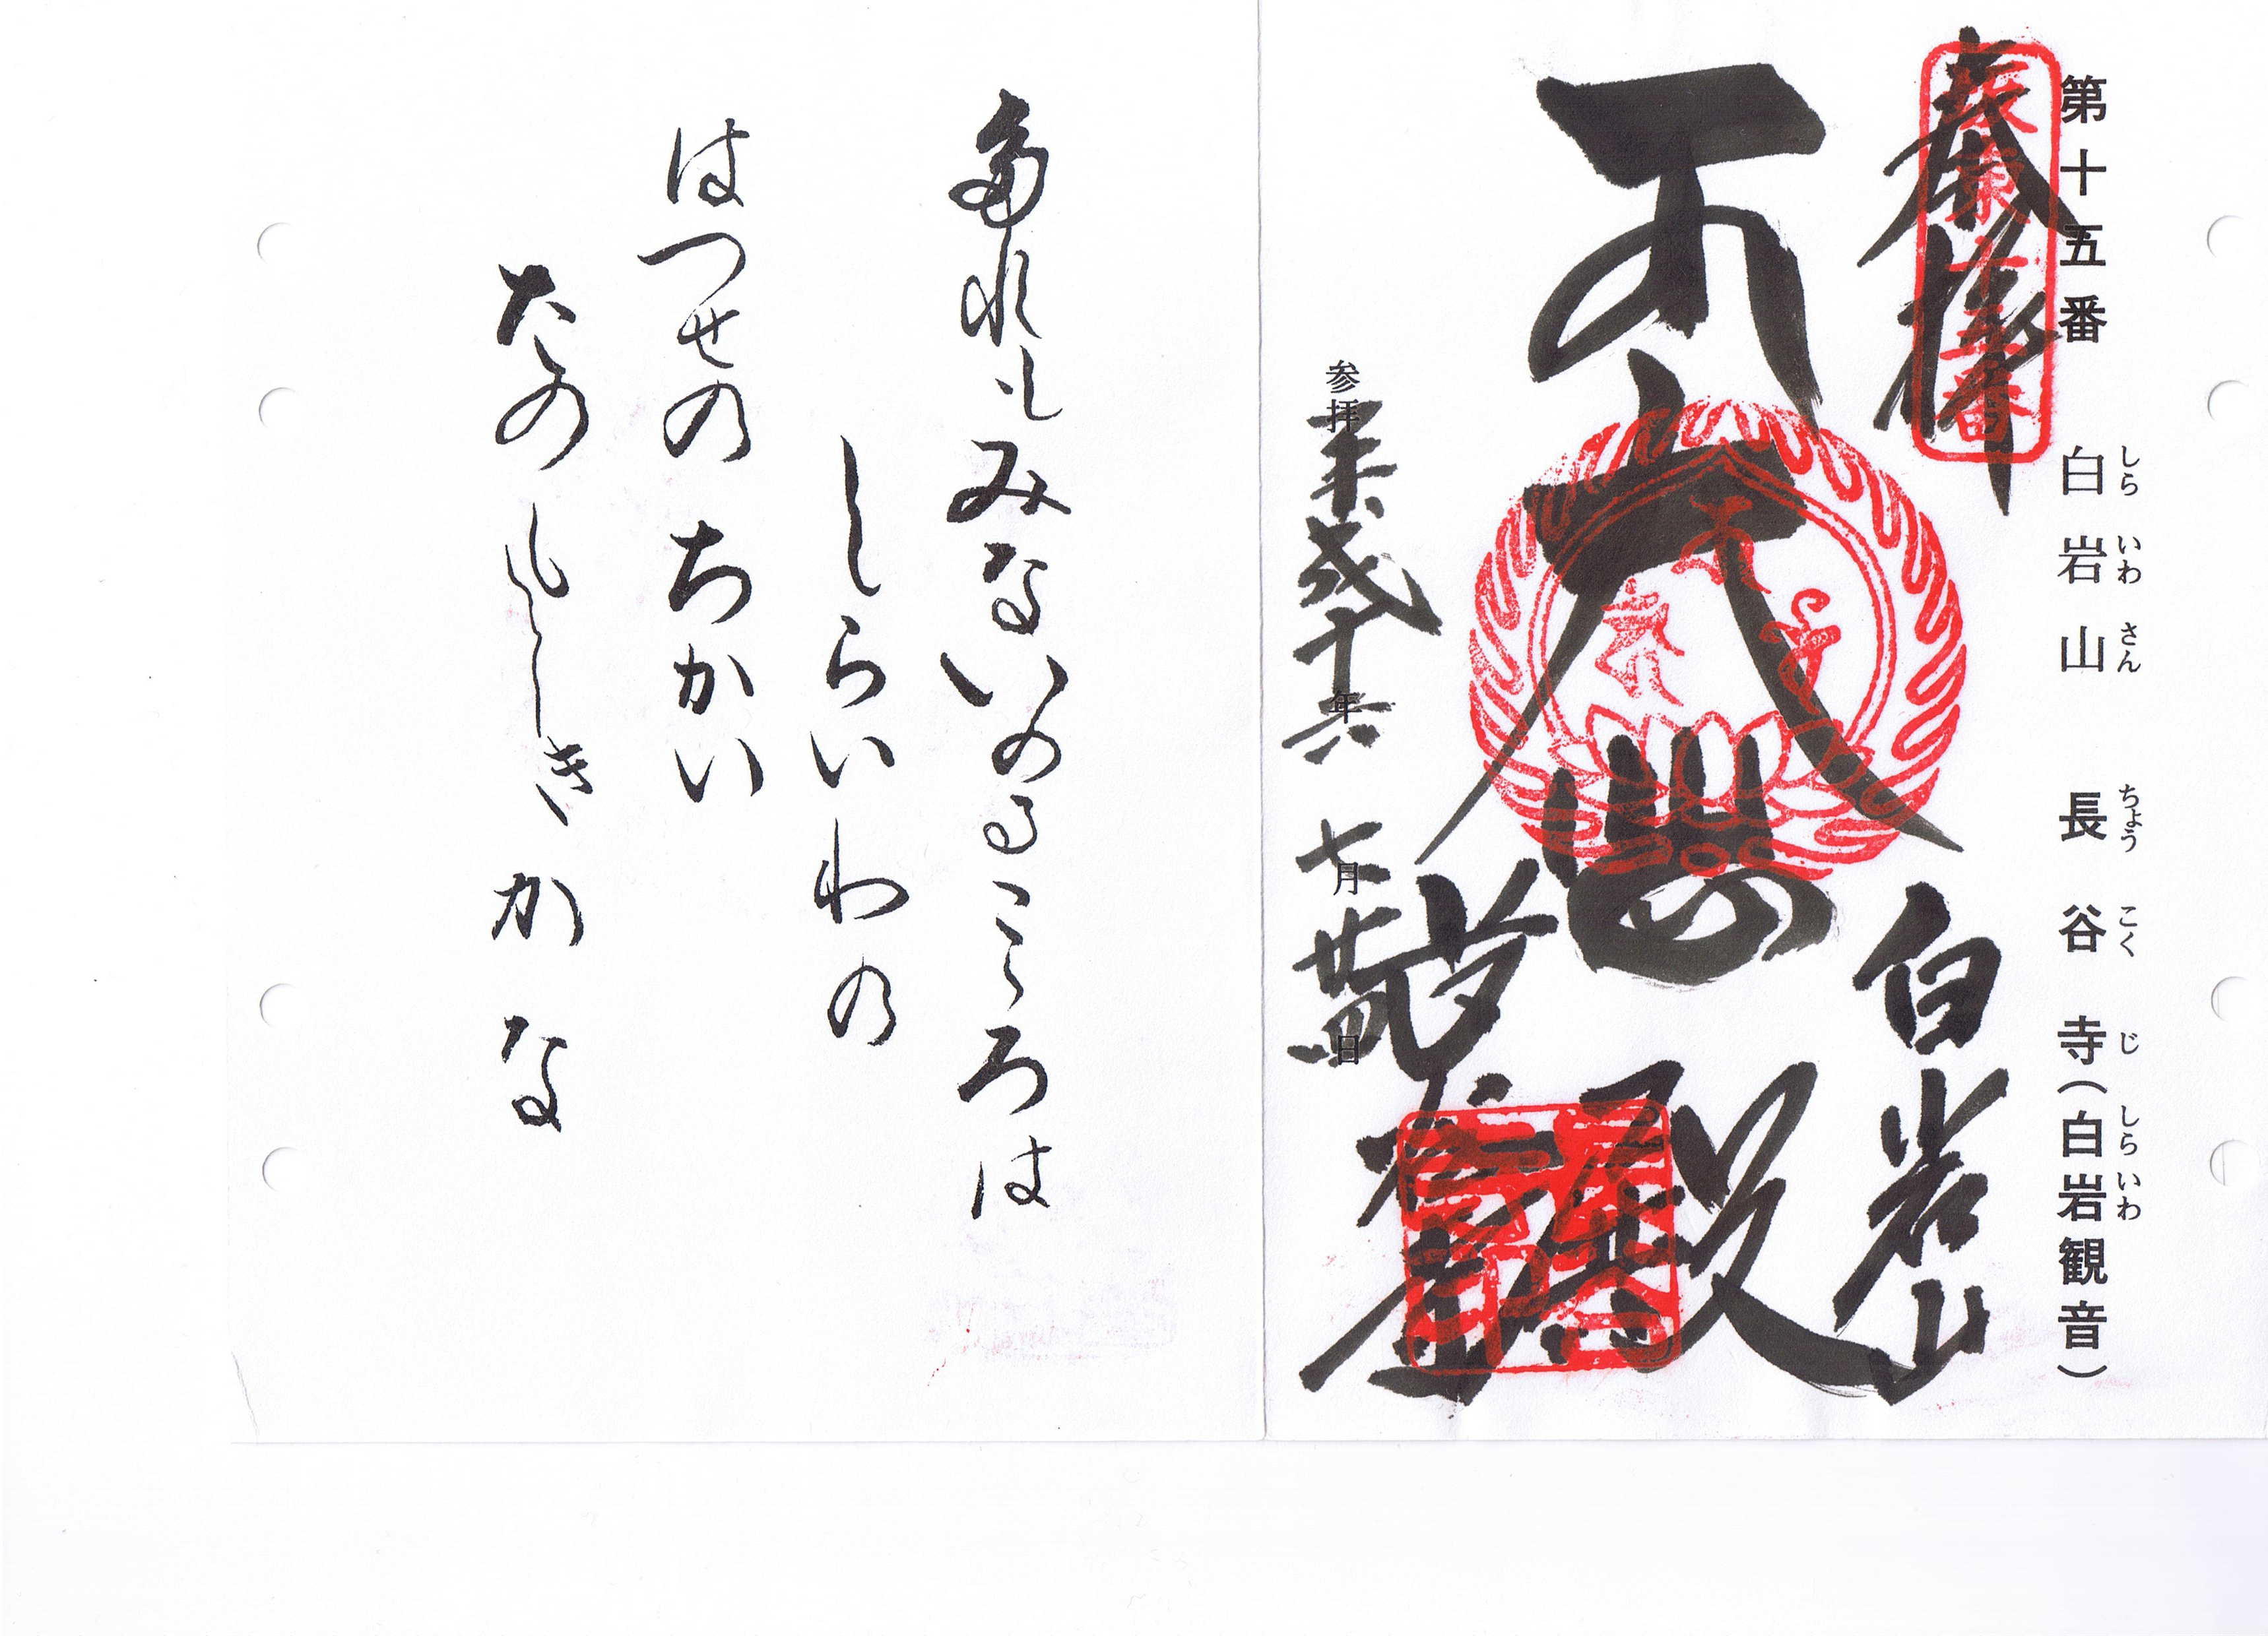 第十五番 白岩山 長谷寺(白岩観音)
しら いわ さん ちょう こく じ しら いわ
奉拝
坂東十五番
白岩山
大悲殿
参拝 平成十六年 七月廿四日
多れもみないのるこころは
しらいわの
はつせのちかい
たのもしきかな